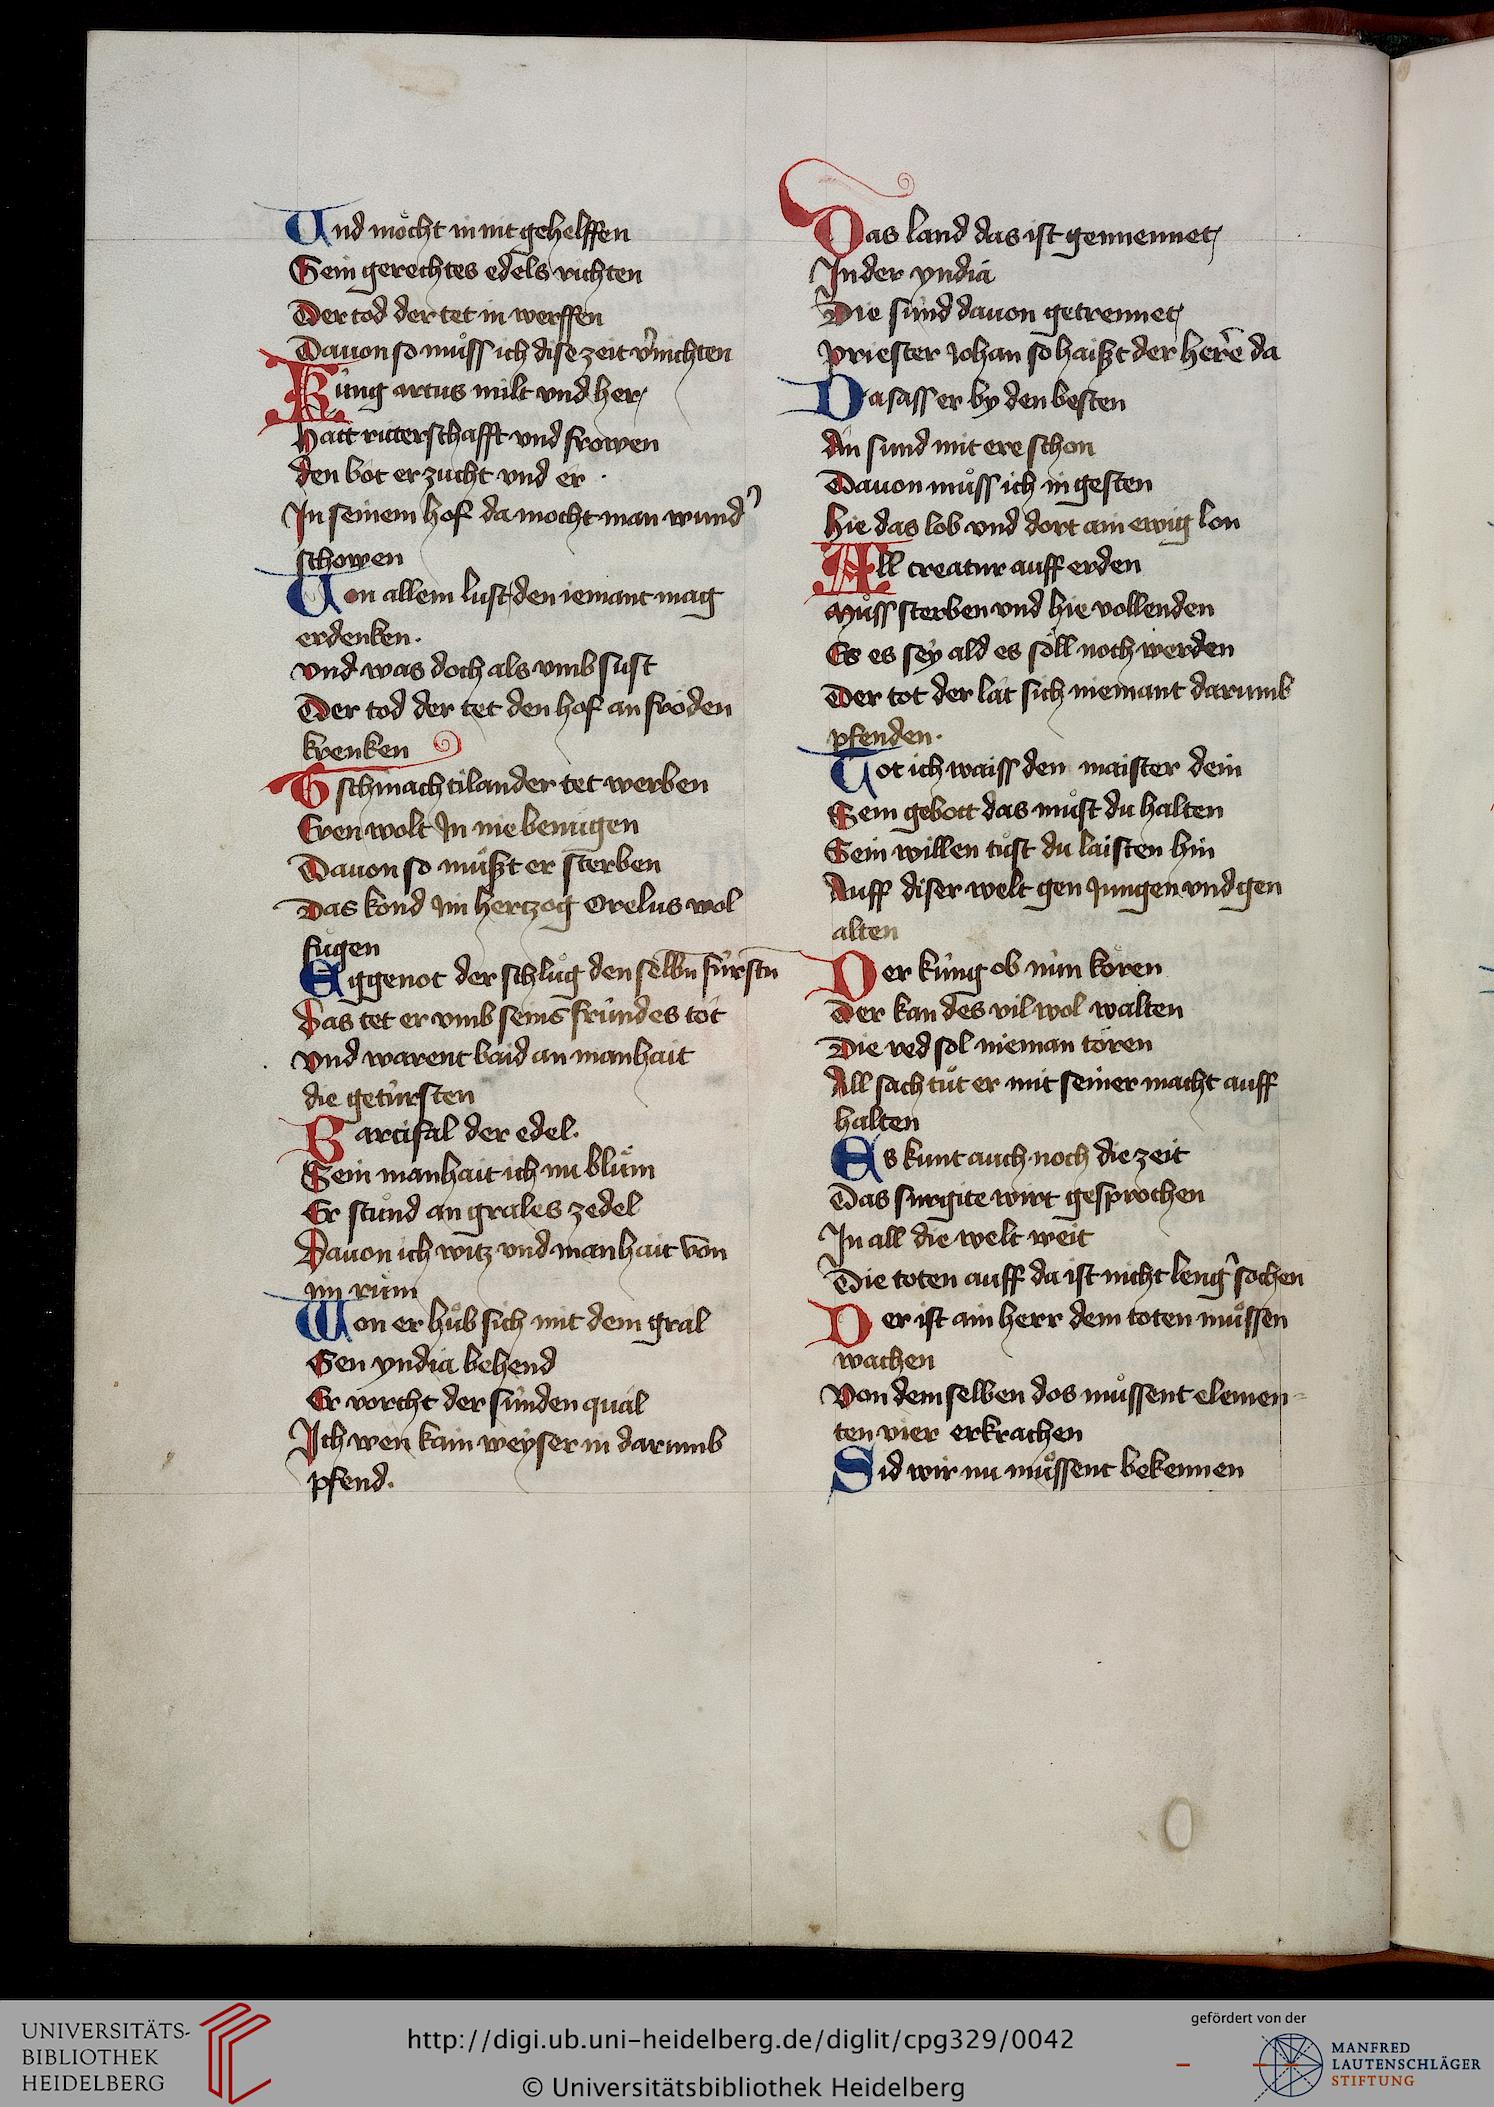 Und möcht in nit gehelffen
Sein gerechtes edels richten
Der tod der tet in werffen
Dauon so muͦss ich dise zeit v̉nichten
Kúng artus milt vnd her
Hatt ritterschafft vnd frowen
den bot er zucht vnd er ·
In seinem hof da mocht man wund̉
schowen
Von allem lust den iemant mag
erdenken ·
vnd was doch als vmb sust
Der tod der tet den hof an fröden
krenken
Tschinachtilander tet werben
Eren wolt In nie benúgen
Dauon so muͦszt er sterben
Das kond Im hertzog Orelus wol
fuͤgen
Eggenot der schluͦg den selbn̄ fúrstn̄
Das tet er vmb seins frúndes tot
vnd warent baid an manhait
die getúrsten
Partifal der edel ·
Sein manhait ich nu bluͤm
Er stuͦnd an grales zedel
Dauon ich witz vnd manhait von
im ruͤm
Won er huͦb sich mit dem gral
Gen yndia behend
Er vorcht der súnden qual
Ich wen kain weyser in darumb
pfend ·
Das land das ist gennennet
In der yndia
Die súnd dauon getrennet
priester Johan so haiszt der herre da
Da sass er by den besten
An sund mit ere schon
Dauon muͦss ich in gesten
hie das lob vnd dort ain ewig lon
All creatur auff erden
Muͦss sterben vnd hie vollenden
Es es seÿ ald es söll noch werden
Der tot der lat sich niemant darumb
pfenden ·
Tot ich waiss den maister dein
Sein gebott das muͦst du halten
Sein willen tuͦst du laisten hin
Auff diser welt gen Jungen vnd gen
alten
Der kúng ob nún kören
Der kan des vil wol walten
Die red sol nieman tören
All sach tuͦt er mit seiner macht auff
halten
Es kunt auch noch die zeit
Das surgite wirt gesprochen
In all die welt weit
Die toten auff da ist nicht leng̉ sochen
Der ist ain herr dem toten muͦssen
wachen
Von dem selben dos muͦssent elemen-
ten vier erkrachen
Sid wir nu muͦssent bekennen
UNIVERSITÄTS-
BIBLIOTHEK
HEIDELBERG
http://digi.ub.uni-heidelberg.de/diglit/cpg329/0042
© Universitätsbibliothek Heidelberg
gefördert von der
MANFRED
LAUTENSCHLÄGER
STIFTUNG